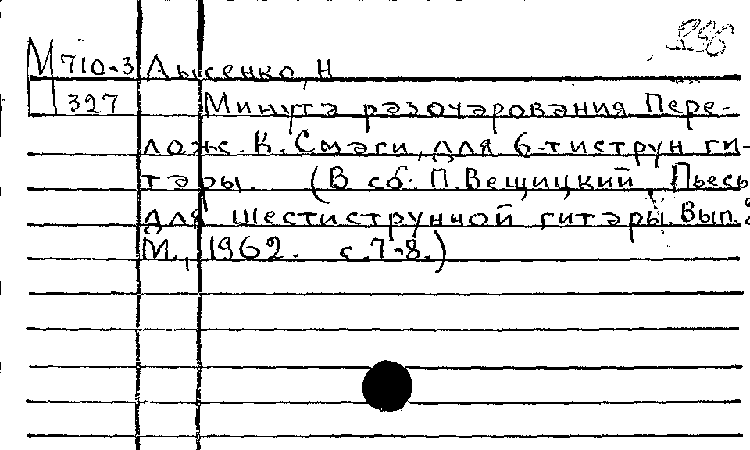 М 710-3 Лысенко, Н
327 Минута разочарования Пере-
лож. К. Смаги, для 6-тиструн ги-
тары. (В сб: П. Вещицкий, Пьесы
для шестиструнной гитары. Вып. 2
М., 1962. с. 7-8.)